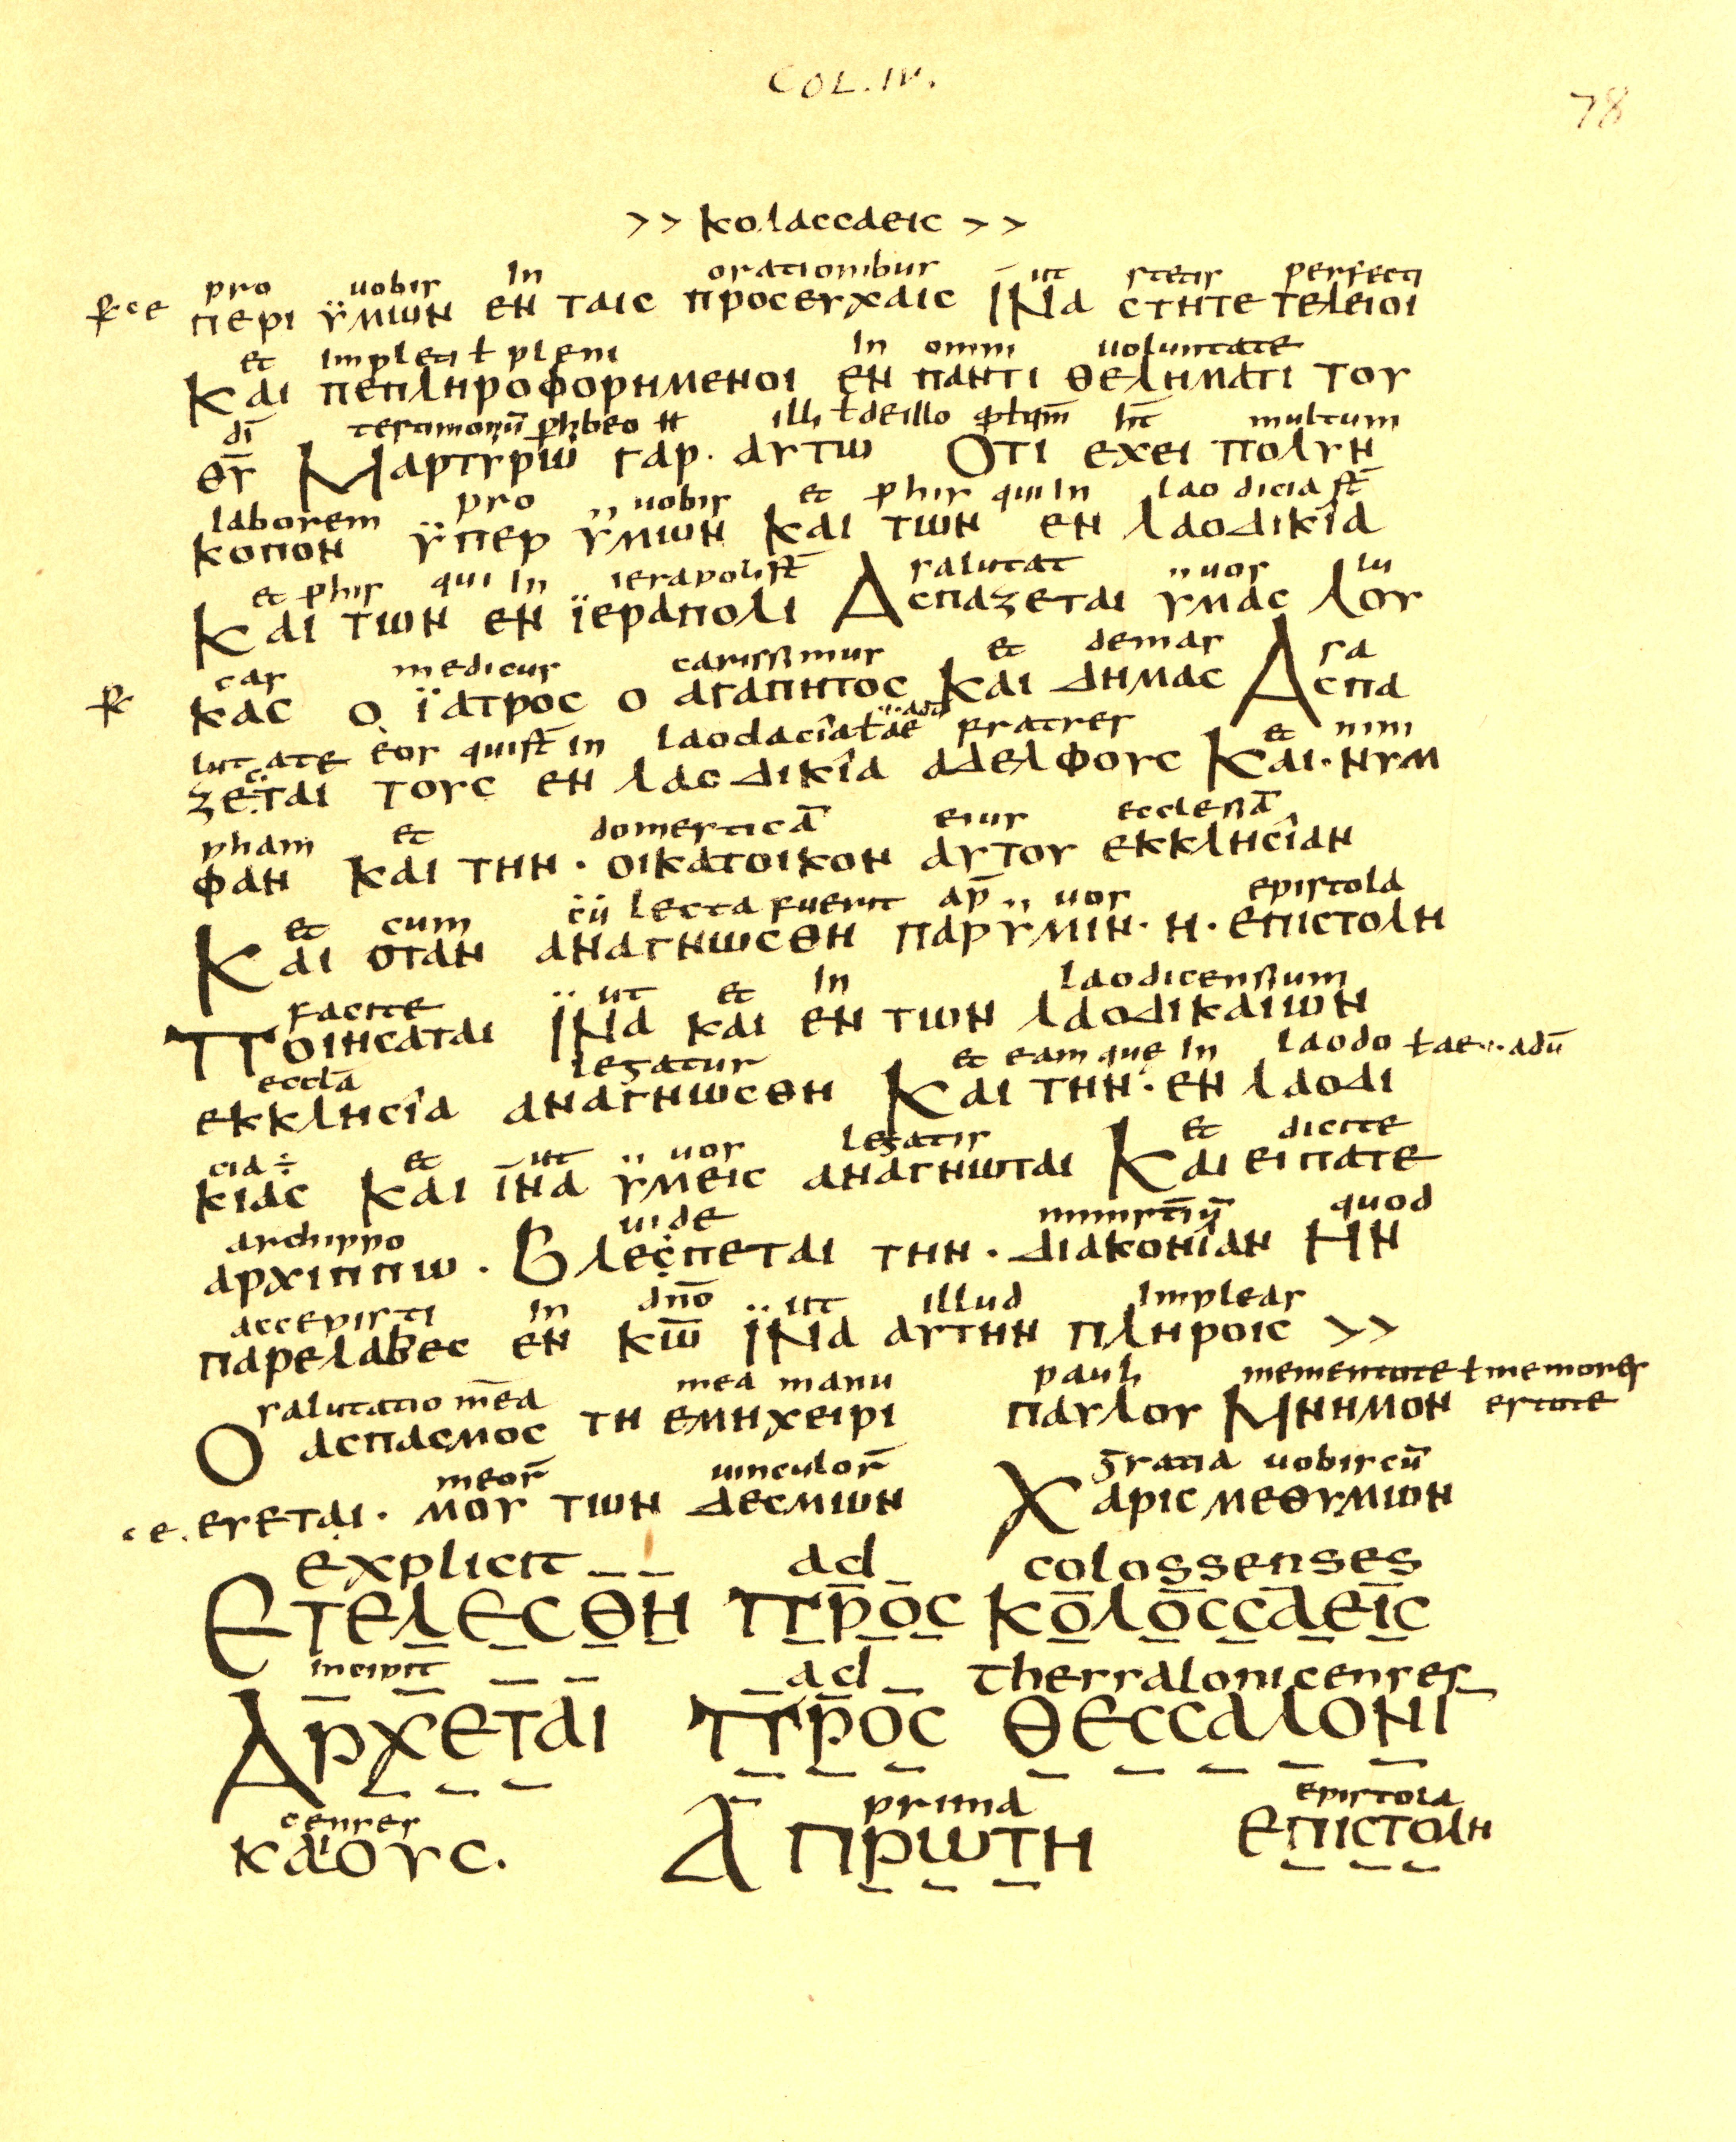 COL. IV.
78
>> κολαссαεις >>
pro uobis In orationibus ut stetis perfecti
περι ϋμων εν ταις προσευχαις ϊνα στητε τελειοι
et impleti ł pleni In omni uoluntate
Και πεπληροφορημενοι εν παντι θεληματι του
dī illi ł de illo multum
θ̅υ̅ Μαρτυρω γαρ. αυτω Οτι εχει πολυν
laborem pro uobis et qui In lao dicia sт̄
κοπον ϋπερ ϋμων και των εν λαοδικια
et qui In ierapoli sт̄ salutat uos lu
Και των εν ϊεραπολι Ασπαζεται υμας λου
cas medicus carissimus et demas sa
κας ο ϊατρος ο αγαπητος Και δημας Ασπα
lutate eos qui sт̄ in fratres et nim
ζεται τους εν λαοδικια αδελφους Και. νυμ
pham et domesticā eius ecclesiā
φαν και την. οικατοικον αυτου εκκλησιαν
et cum cū lecta fuerit ap̄ uos epistola
Και οταν αναγνωσθη παρϋμιν. η. επιστολη
facite ut et In laodicensium
Ποιησαται ϊνα και εν των λαοδικαιων
ecclā legatur et eam quę In laodo ł ae
εκκλησια αναγνωσθη Και την. εν λαοδι
cia ÷ et ut uos legatis et dicite
κιας και ϊνα υμεις αναγνωται Και ειπατε
archippo uide ministeriū quod
αρχιππω. Βλεσπεται την. διακονιαν Ην
accepisti In dn̄o ut illud Impleas
παρελαβες εν κ̅ω̅ ϊνα αυτην πληροις >>
salutatio mea mea manu pauli mementote ł memores
Ο ασπασμος τη εμηχειρι παυλου Μνημον estote
meor̄ uinculor̄ gratia uobiscū
ευεται. μου των δεσμων Χαρις μεθυμων
explicit ad colossenses
Ετελεσθη προς κολοσσαεις
incipit ad thessalonicenses
Αρχεται προς θεσσαλονι
censes prima epistola
καιους. Α πρωτη Επιστολη